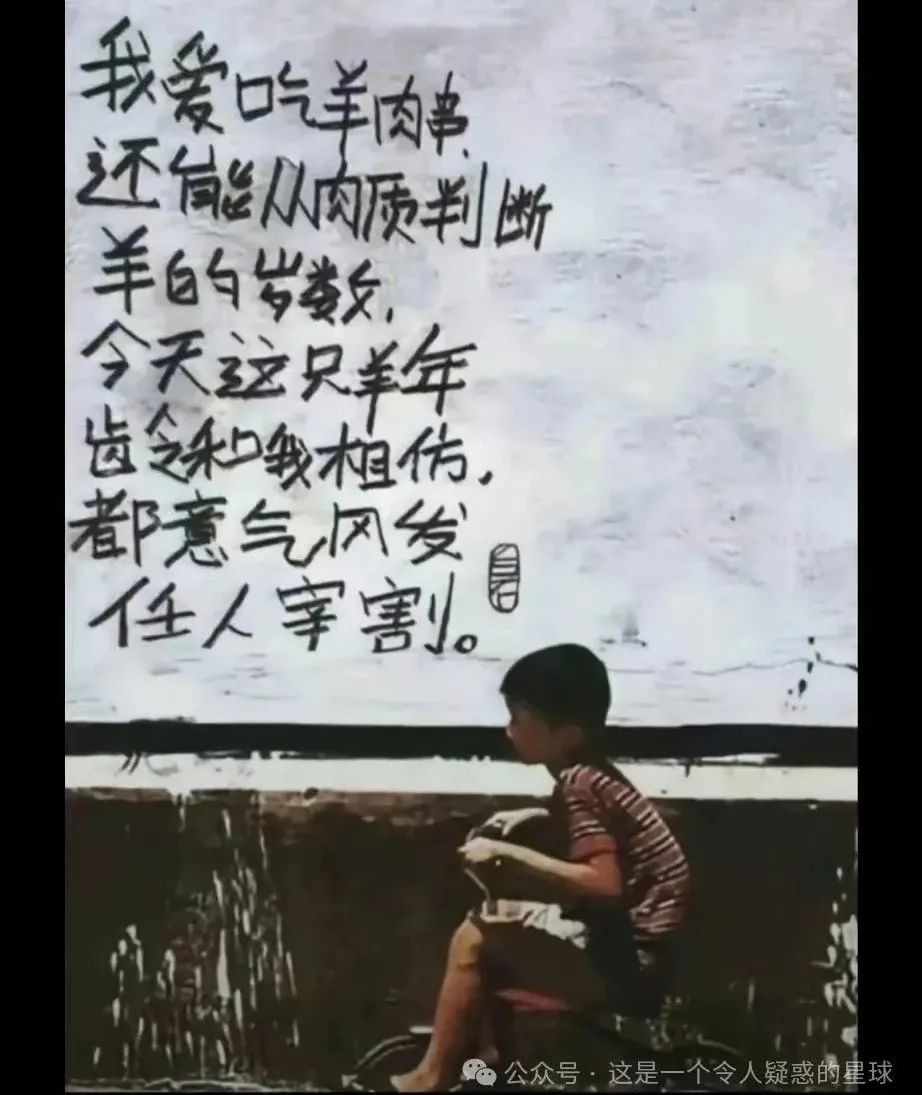 我爱吃羊肉串,
还能从肉质判断
羊的岁数,
今天这只羊年
齿令和哦相仿,
都意气风发
任人宰割。
公众号·这是一个令人疑惑的星球